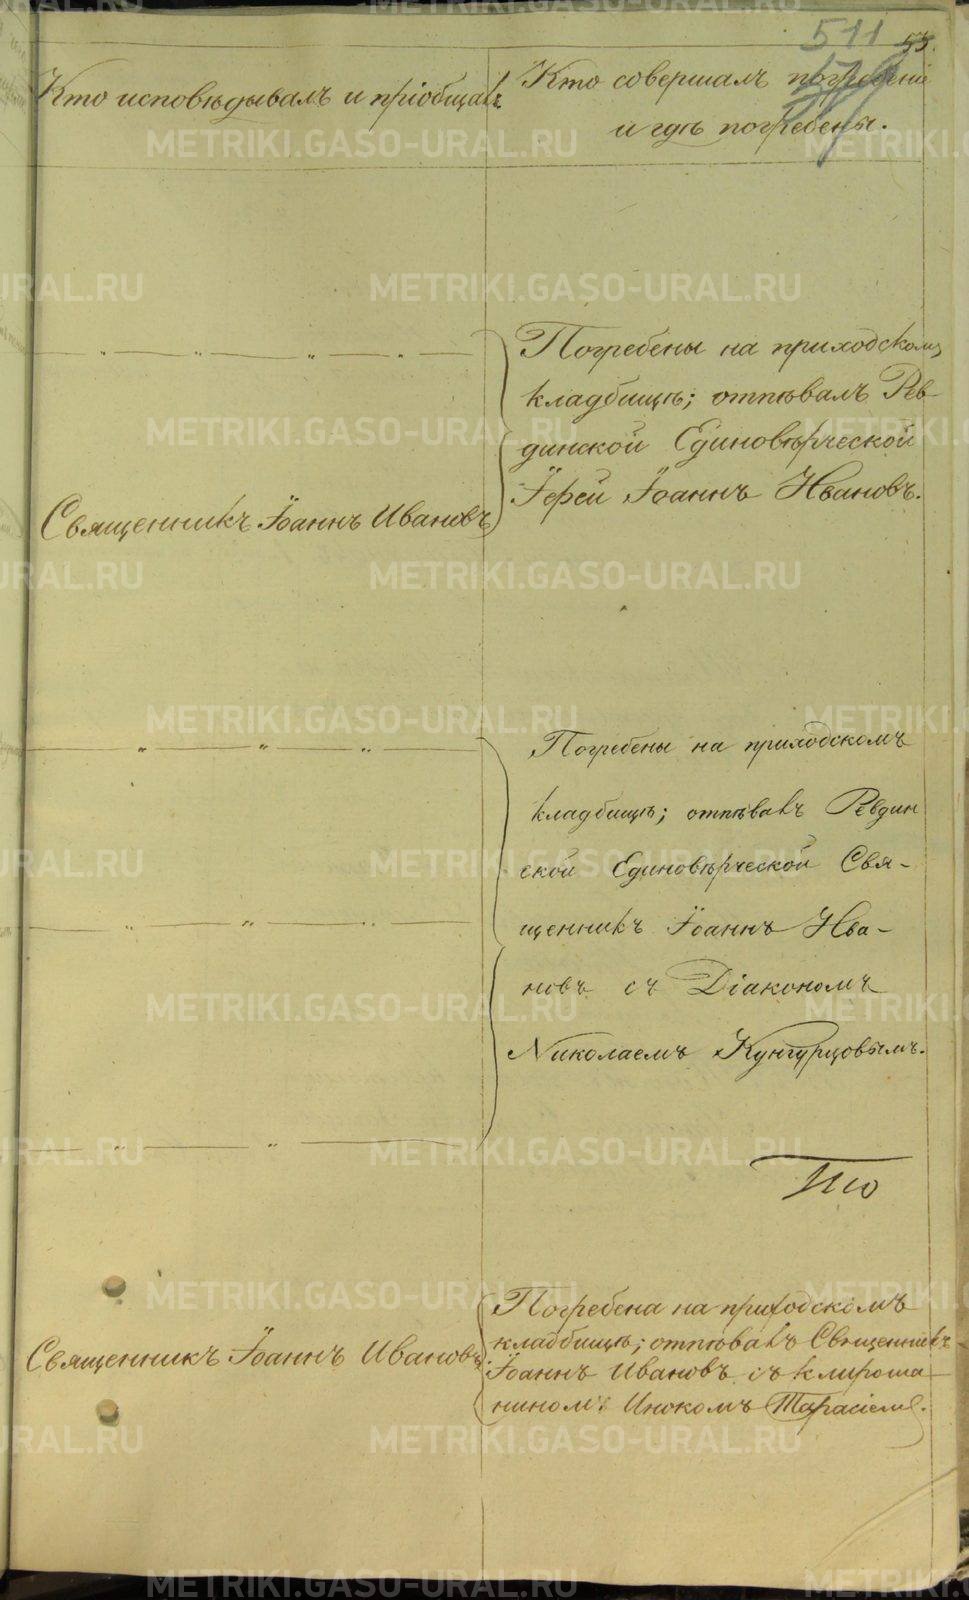 511 53.
Кто исповѣдывалъ и пріобщалъ.
Кто совершалъ погребеніе
и гдѣ погребены.
Погребены на приходскомъ
кладбищѣ; отпѣвалъ Рев-
динской Единовѣрческой
Іерей Іоаннъ Ивановъ.
Священникъ Іоаннъ Ивановъ
Погребены на приходскомъ
кладбищѣ; отпѣвалъ Ревдин
ской Единовѣрческой Свя-
щенникъ Іоаннъ Ива-
новъ съ Діакономъ
Николаемъ Кунгурцовымъ.
Ито
Погребена на приходскомъ
кладбищѣ; отпѣвалъ Священникъ
Іоаннъ Ивановъ съ клироша-
нином: Инокомъ Тарасіемъ.
Священникъ Іоаннъ Ивановъ
METRIKI.GASO-URAL.RU